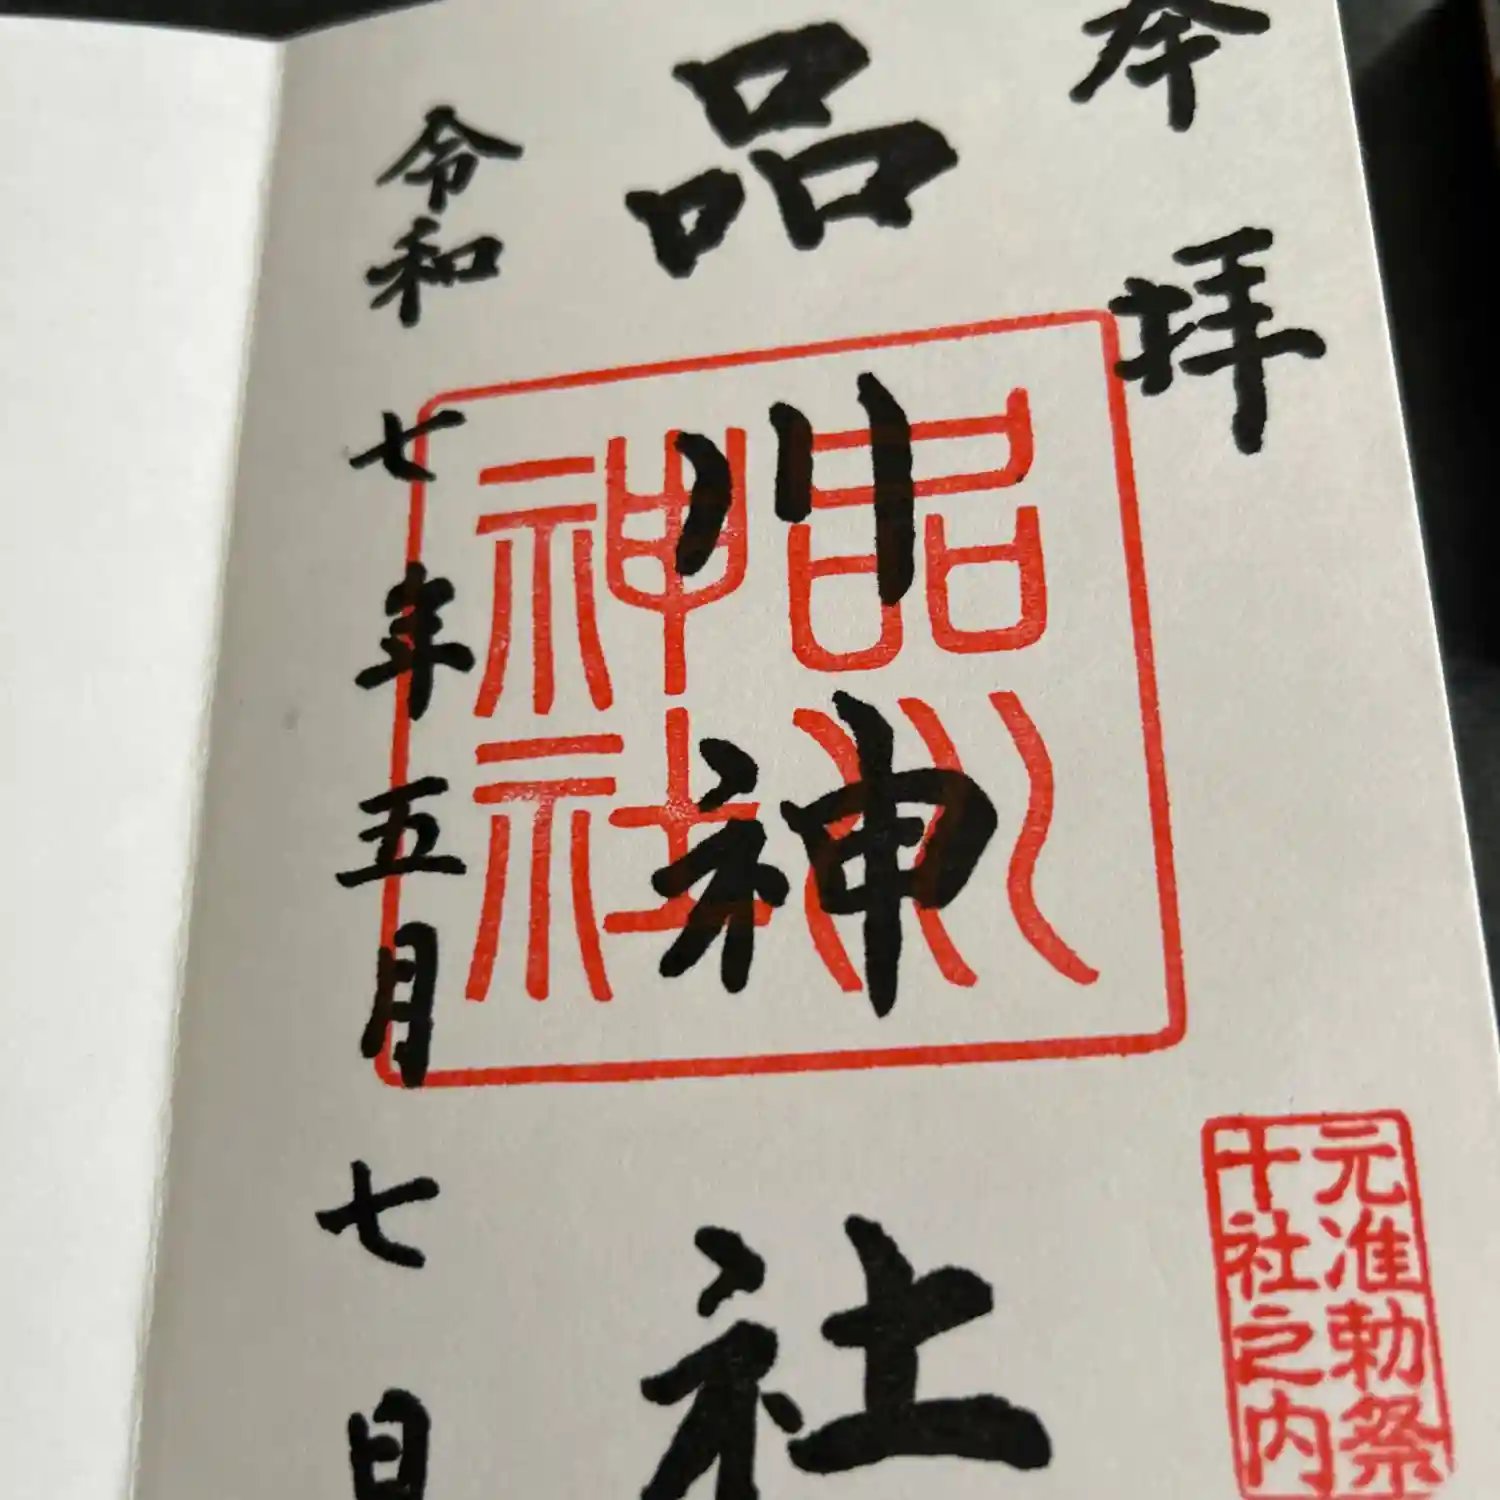 奉拝
品川神社
令和七年五月七日
品川
神社
元准勅祭
十社之内